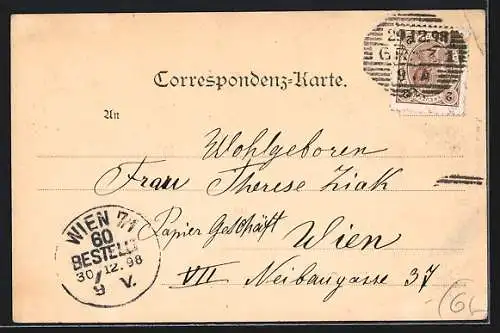 29.12.98
GRAZ 1
Correspondenz-Karte.
An
Wohlgeboren
Frau Therese Ziak
Papier Geschäft
Wien
VII Neibaugasse 37
WIEN 7/1
60
BESTELLT
30/12.98
9 V.
(6